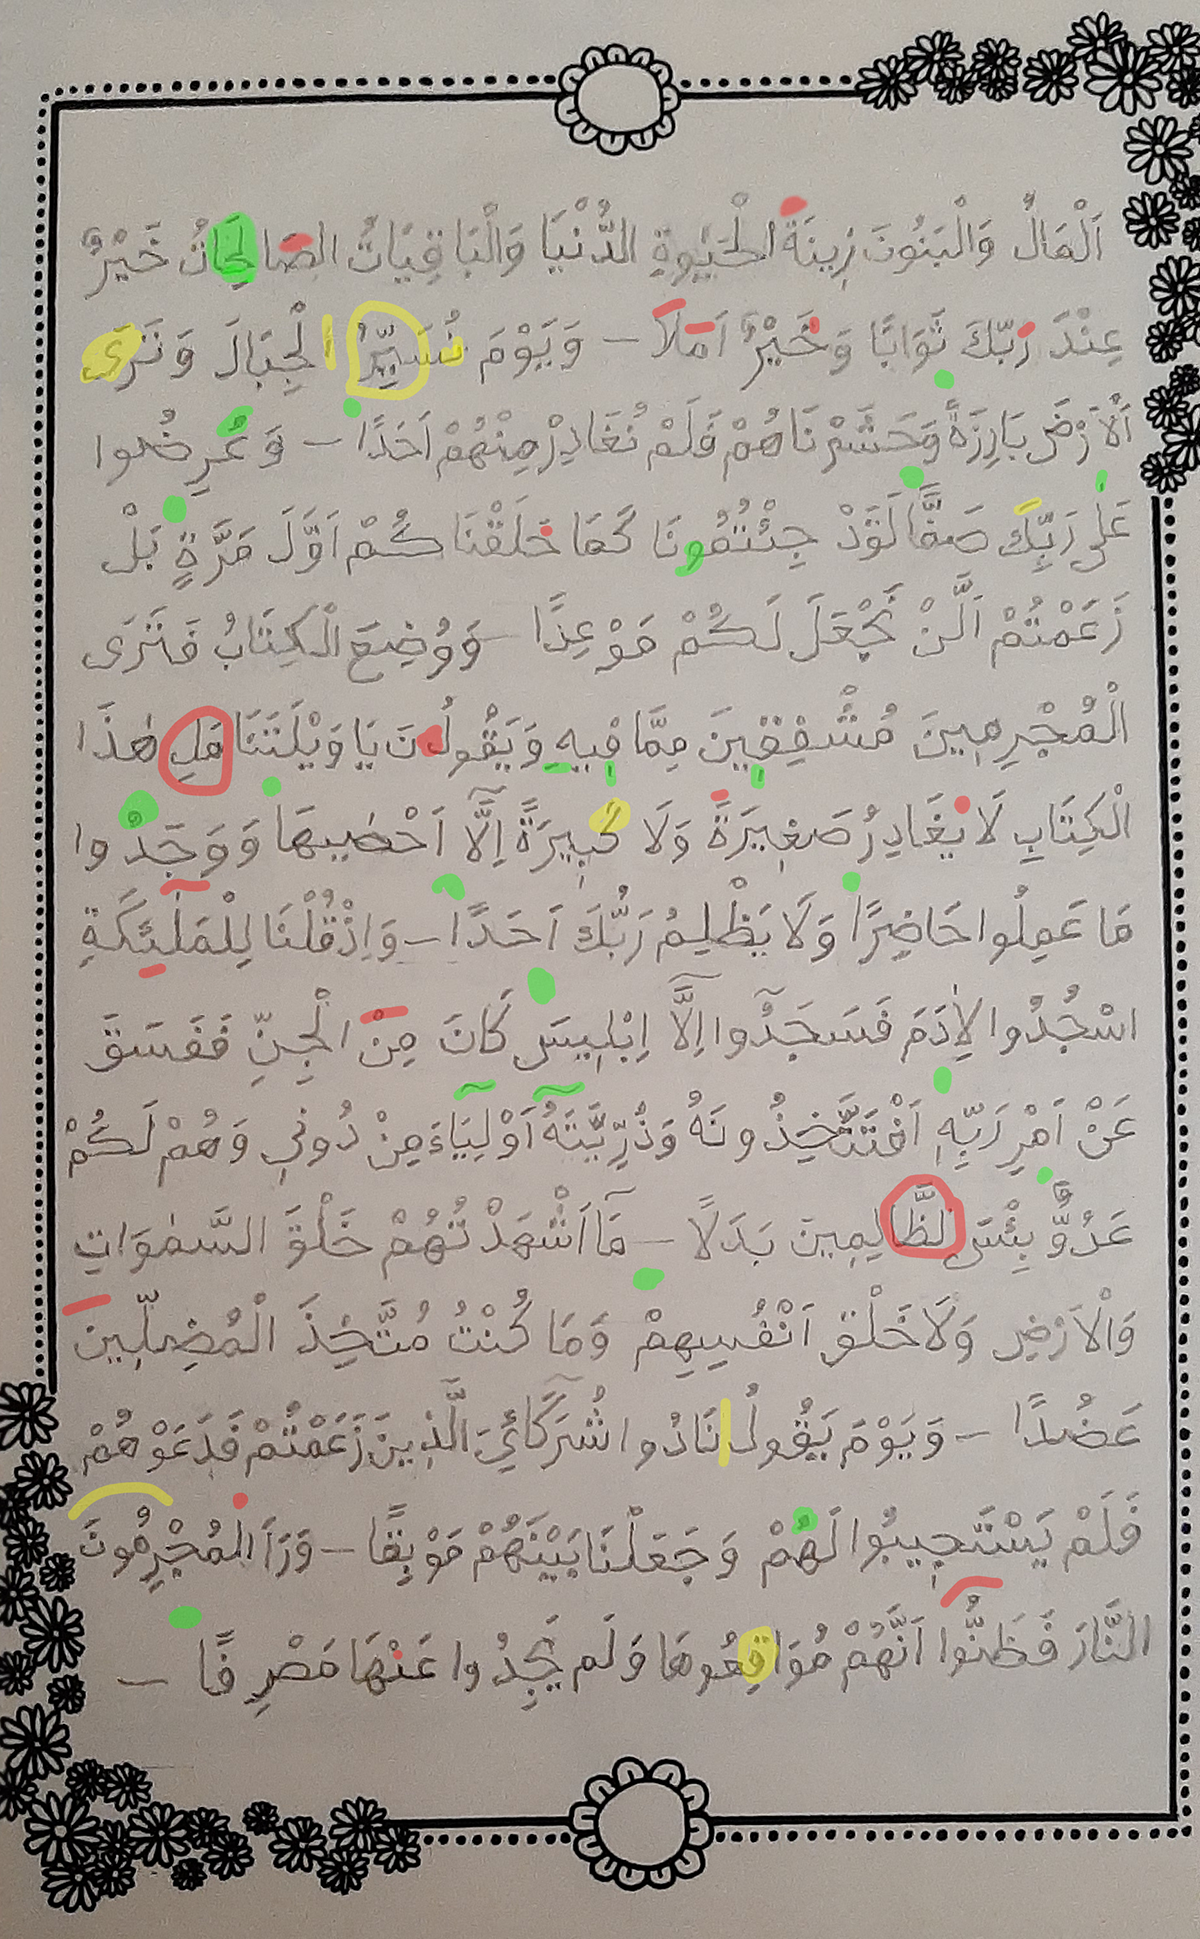 اَلْمَالُ وَالْبَنُونَ زِينَةُ الْحَيٰوةِ الدُّنْيَا وَالْبَاقِيَاتُ الصَّالِحَاتُ خَيْرٌ
عِنْدَ رَبِّكَ ثَوَابًا وَخَيْرٌ اَمَلًا – وَيَوْمَ نُسَيِّرُ الْجِبَالَ وَتَرَى
اْلاَرْضَ بَارِزَةً وَحَشَرْنَاهُمْ فَلَمْ نُغَادِرْ مِنْهُمْ اَحَدًا – وَعُرِضُوا
عَلٰى رَبِّكَ صَفًّا لَقَدْ جِئْتُمُونَا كَمَا خَلَقْنَا كُمْ اَوَّلَ مَرَّةٍ بَلْ
زَعَمْتُمْ اَلَّنْ نَجْعَلَ لَكُمْ مَوْعِدًا – وَوُضِعَ الْكِتَابُ فَتَرَى
الْمُجْرِمِينَ مُشْفِقِينَ مِمَّا فِيهِ وَيَقُولُنَ يَا وَيْلَتَنَا مَلِ هٰذَا
الْكِتَابِ لَا يُغَادِرُ صَغِيرَةً وَلَا كَبِيرَةً اِلَّا اَحْصٰيهَا وَوَجَدُوا
مَا عَمِلُوا حَاضِرًا وَلَا يَظْلِمُ رَبُّكَ اَحَدًا – وَاِذْقُلْنَا لِلْمَلٰئِكَةِ
اسْجُدُوا لِاٰدَمَ فَسَجَدُٓوا اِلَّٓا اِبْلِيسَ كَانَ مِنْ الْجِنِّ فَفَسَقَ
عَنْ اَمْرِ رَبِّهِ اَفَتَتَّخِذُونَهُ وَذُرِّيَّتَهُٓ اَوْلِيَٓاءَ مِنْ دُونِي وَهُمْ لَكُمْ
عَدُوٌّ بِئْسَ لظَّالِمِينَ بَدَلًا – مَٓا اَشْهَدْتُهُمْ خَلْقَ السَّمٰوَاتِ
وَالْاَرْضِ وَلَا خَلْقَ اَنْفُسِهِمْ وَمَا كُنْتُ مُتَّخِذَ الْمُضِلِّينَ
عَضُدًا – وَيَوْمَ يَقُولُ نَادُوا شُرَكَٓائِيَ الَّذِينَ زَعَمْتُمْ فَدَعَوْهُمْ
فَلَمْ يَسْتَجِيبُوا لَهُمْ وَجَعَلْنَا بَيْنَهُمْ مَوْبِقًا – وَرَاَ الْمُجْرِمُونَ
النَّارَ فَظَنُّوا اَنَّهُمْ مُوَاقِعُوهَا وَلَم يَجِدُوا عَنْهَا مَصْرِفًا –